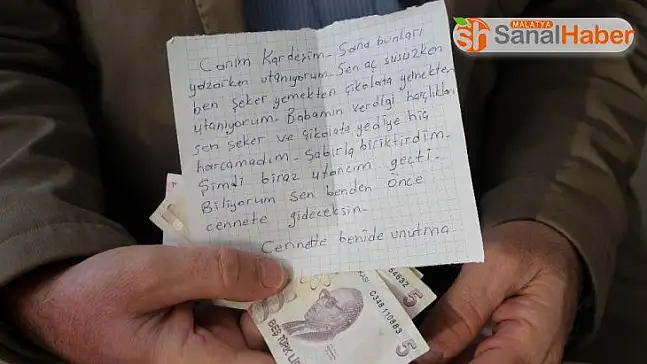 MALATYA
SH SanalHaber
Canım Kardeşim. Sana bunları
yazarken utanıyorum. Sen aç susuzken
ben şeker yemekten çikolata yemekten
utanıyorum. Babamın verdiği harçlıkları
sen şeker ve çikolata yediye hiç
harcamadım. Sabırla biriktirdim.
Şimdi biraz utancım geçti.
Biliyorum sen benden önce
cennete gideceksin.
Cennette benide unutma.
5
C348 110883
BEŞ TÜRK
5